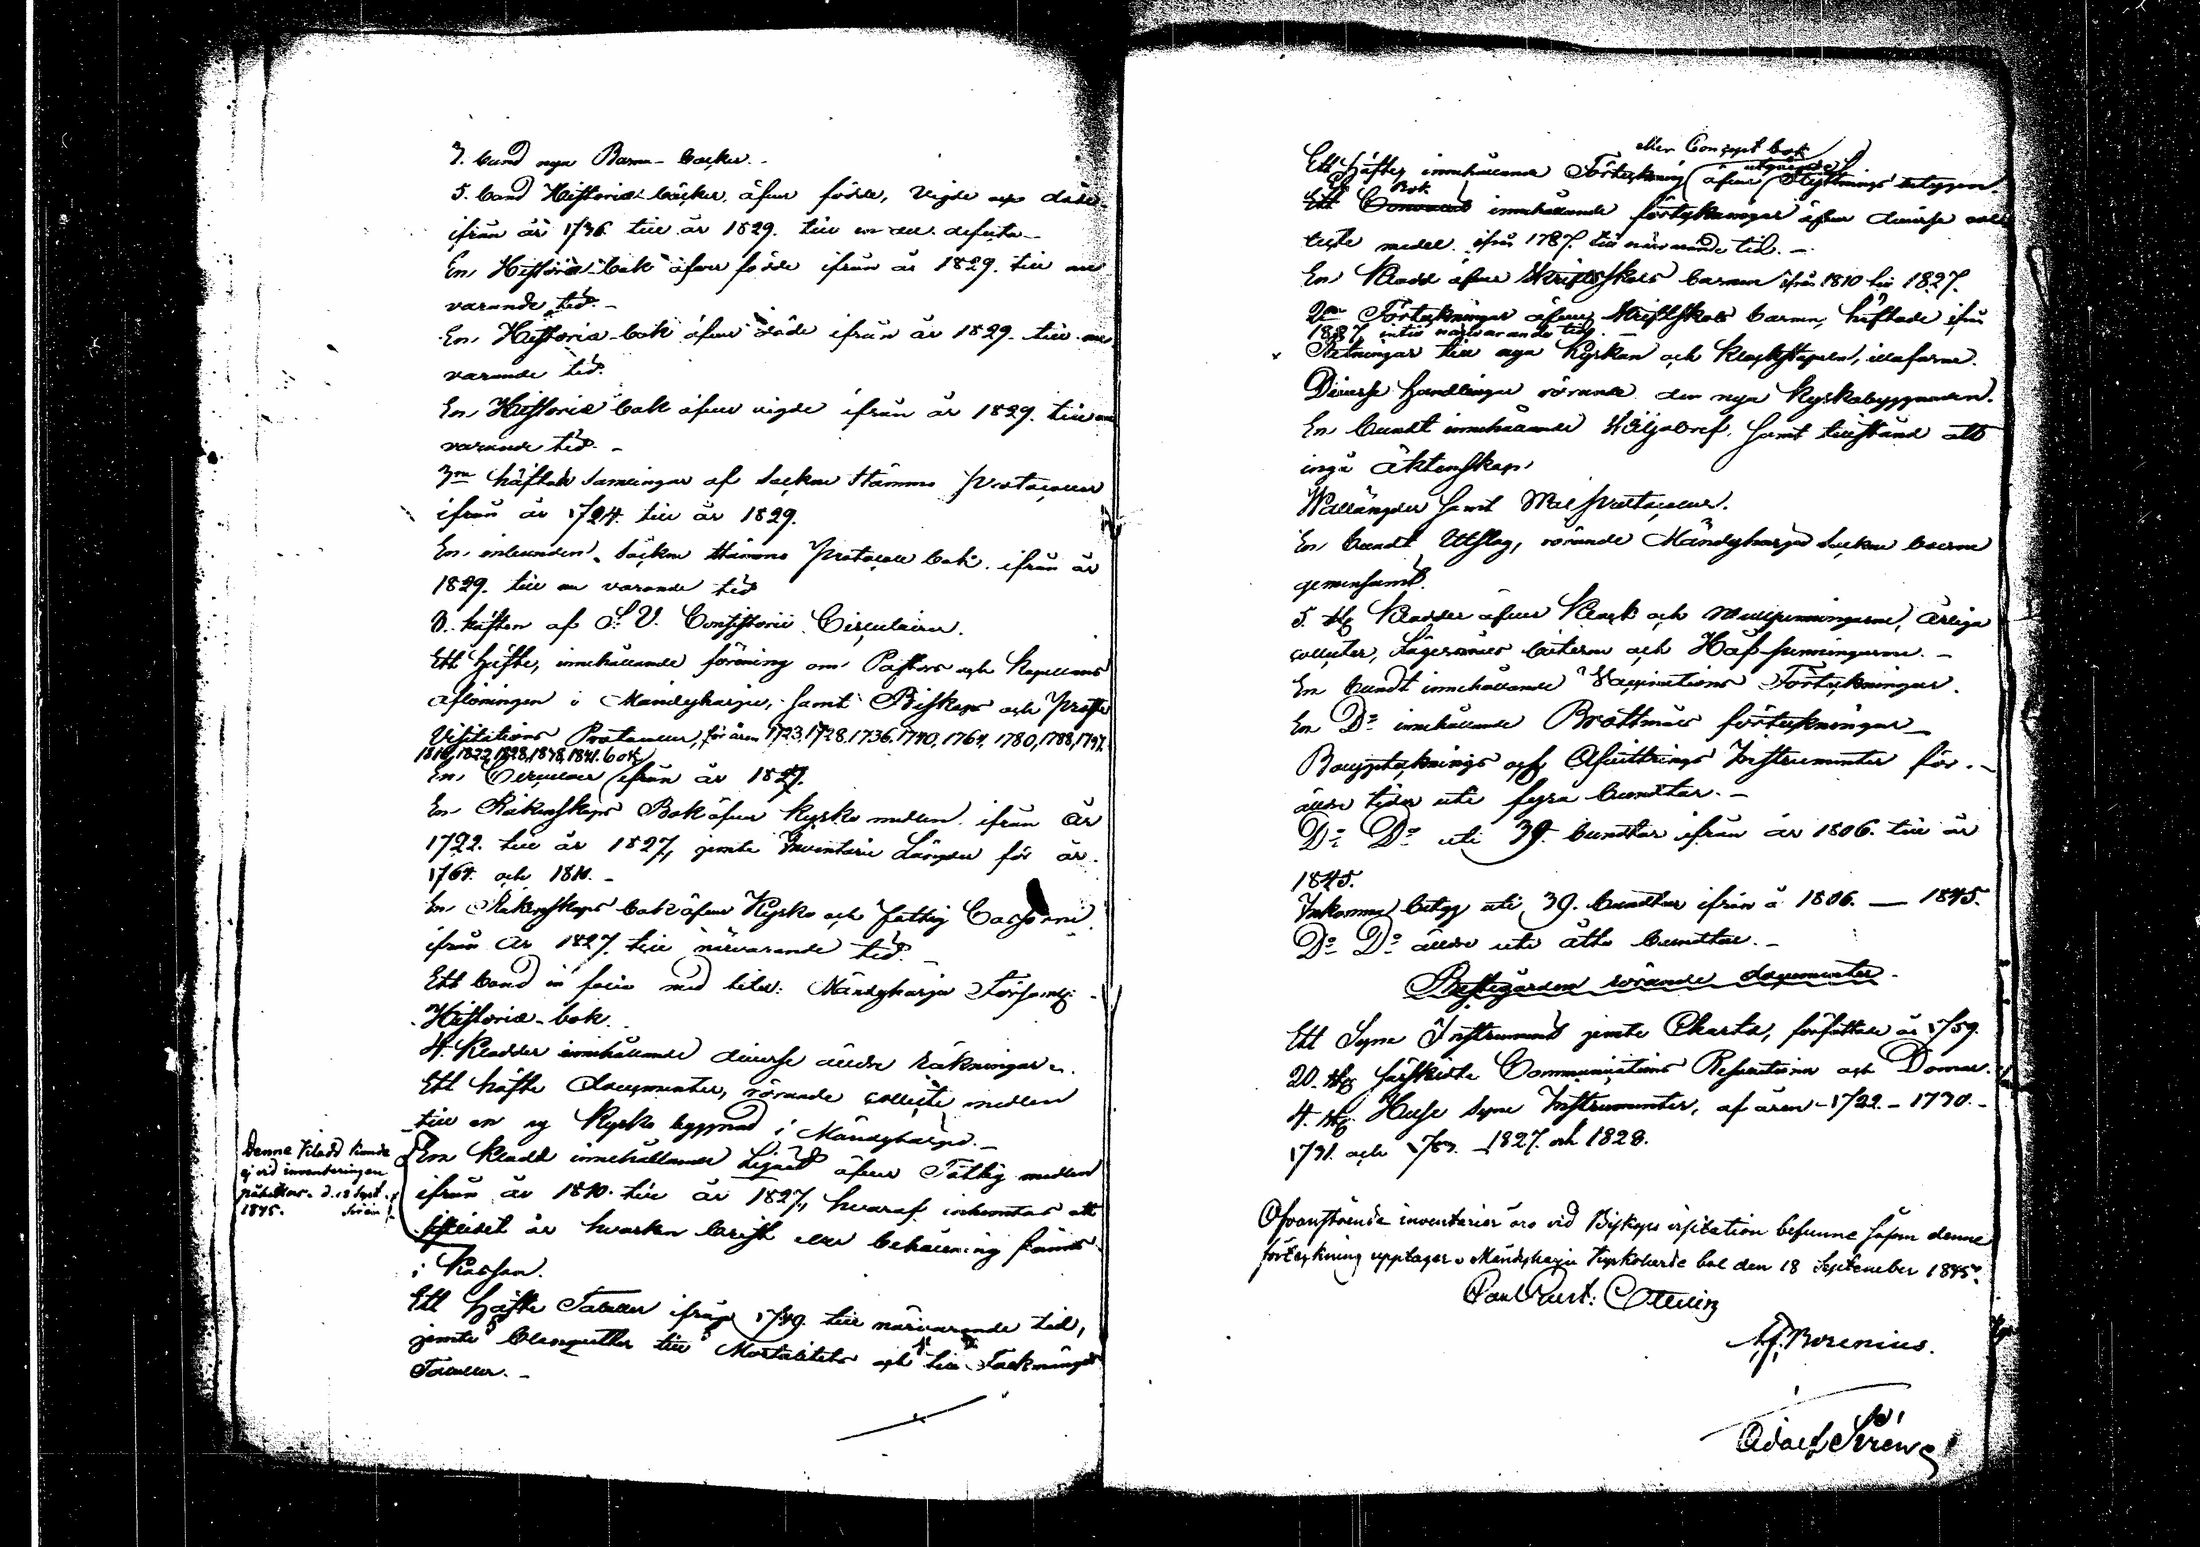 3. band nya Barna-böcker.-
5. band Historiæ böcker, öfver födde, vigde och döde,
ifrån år 1736 till år 1829. till en del defecta-
En Historiæ-bok öfver födde ifrån år 1829. till nu
varande tid.-
En Historiæ-bok öfver döde ifrån år 1829. till nu
varande tid.
En Historiæ bok öfver vigde ifrån år 1829. till nu
varande tid.-
3ne häftade samlingar af Sockne Stämmo Protocoller
ifrån år 1724. till år 1829.
En inbunden Sockne Stämmo Protocolls bok. ifrån år
1829. till nu varande tid
8. häften af S. V. Consistorii Circulairer.
Ett häfte, innehållande förening om Pastors och Kapellans
aflöningen i Mändyharju, samt Biskops och Prosts
Visitations Protocoller, för åren 1723, 1728, 1736, 1740, 1764, 1780, 1788, 1797,
1818, 1822, 1828, 1838, 1841. bok
En Circulair ifrån år 1827.
En Räkenskaps Bok öfver Kyrko medlen ifrån år
1722. till år 1827, jemte Inventarii Längder för år
1764. och 1811.-
En Räkenskaps bok öfver Kyrko och fattig Cassorne
ifrån år 1827. till närvarande tid.-
Ett band in folio med titel: Mändyharju Församl:
Historiæ-bok.
4. Kladdar innehållande diverse äldre räkningar.
Ett häfte documenter, rörande collecte medlen
till en ny Kyrko byggnad i Mändyharju.-
Denne Kladd kunde
ej vid inventeringen
påhittas. d. 18 Sept.
1845. Sirén
En Kladd innehållande öfver Fattig medlen
ifrån år 1810. till år 1827, hvaraf inhemtas att
är hvarken brist eller behållning funnits
i Kassan.
Ett häfte Tabeller ifrån 1749. till närvarande tid,
jemte blanquetter till Mortalitets och till Folkmängds
Tabeller.-
eller Concept bok
utgångne
Ett häfte innehållande Förteckning öfver Flyttnings betygen.
Bok
Ett innehållande förteckningar öfver diverse collecte
medel. ifrån 1787. till närvarande tid.-
En Kladd öfver Skriftskols barnen ifrån 1810 till 1827.
2ne Förteckningar öfver Skriftskols barnen, häftade ifrån
1827, intill närvarande tid.
Ritningar till nya Kyrkan och Klockstapeln, illa farne.
Diverse handlingar rörande den nya Kyrkobyggnaden.
En bundt innehållande Skiljobref, samt tillstånd att
ingå äktenskap.
Wallängder samt Wal protocoller.
En bundt Utslag, rörande Mändyharju Sockne boerne
gemensamt.
5. st. Kladdar öfver Klock och Mullpenningarne, årliga
collecter, Lägersmåls böterne och Håf penningarne.-
En bundt innehållande Vaccinations Förteckningar.
En Do innehållande Brottmåls förteckningar-
Bouppteknings och Afvittrings Instrumenter för
äldre tider uti fyra bundtar.-
Do Do uti 39. bundtar ifrån år 1806. till år
1845.
Inkomne betyg uti 39. bundtar ifrån å 1806. - 1845.
Do Do äldre uti åtta bundtar.-
Prestgården rörande documenter.
Ett Syne Instrument jemte Charta, författade år 1759.
20. st. särskilte Communications Resolutioner och Domar.
4. st. Huse Syne Instrumenter, af åren 1722.-1730.-
1731. och 1783. -1827. och 1828.
Ofvanstående inventarier äro vid Biskops visitation befunne såsom denne
förteckning upptager. Mändyharju Kyrkoherde bol den 18 September 1845.
Carl Gust: Ottelin
Borenius.
Adolf Sirén